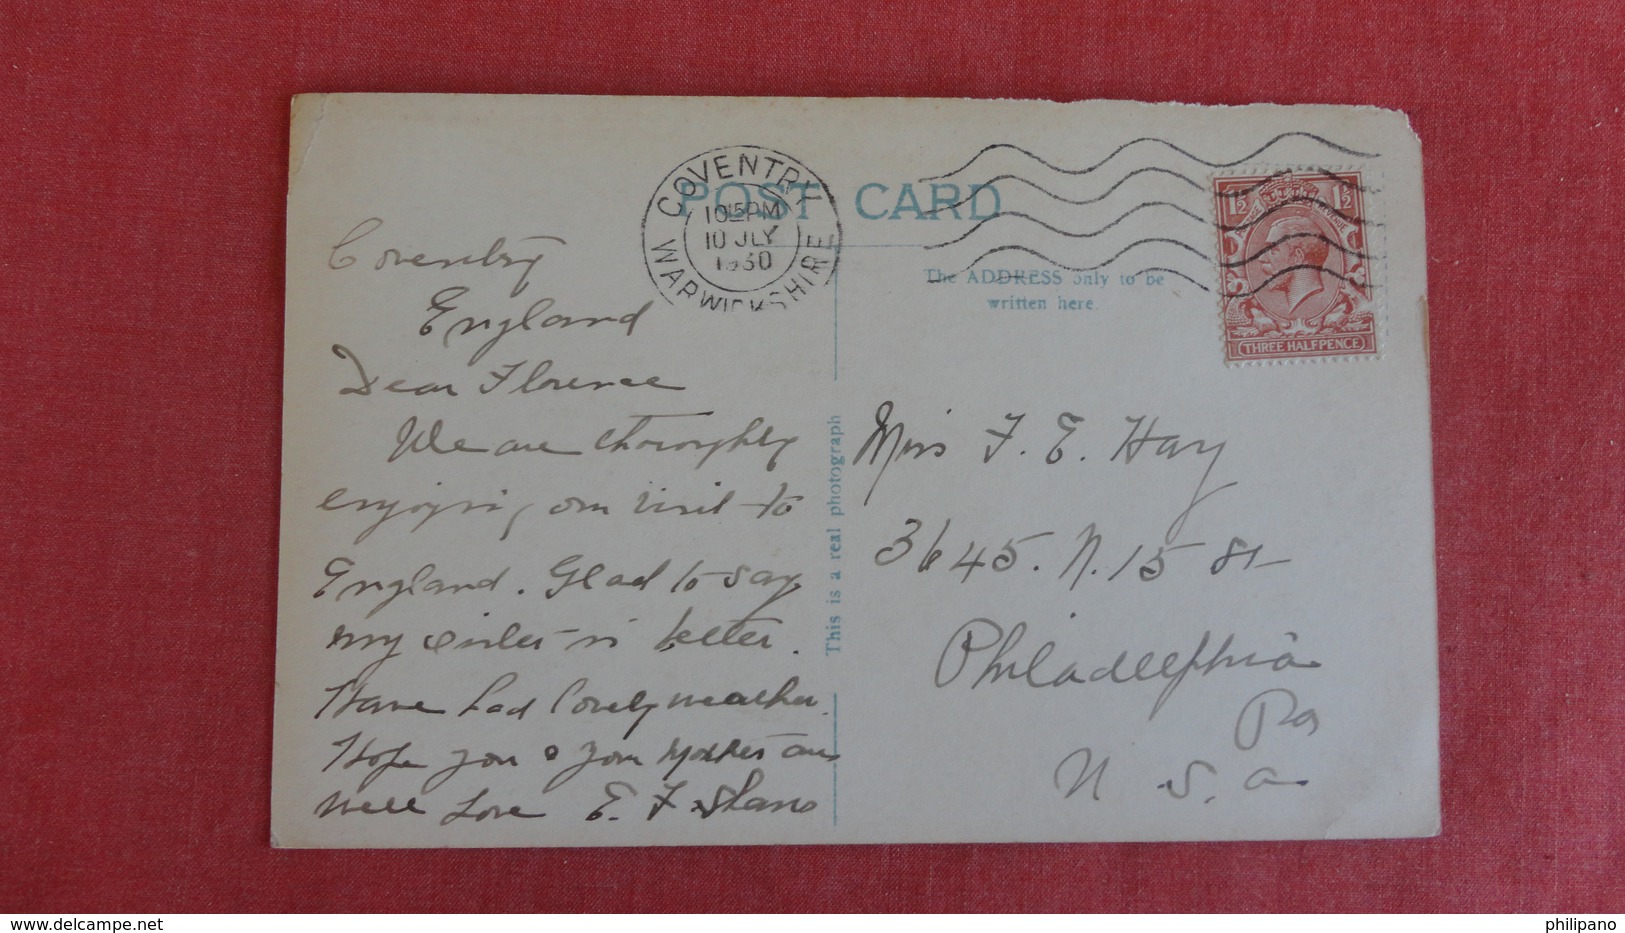 POST CARD
COVENTRY
WARWICKSHIRE
1015PM
10 JLY
1930
1½ 1½
THREE HALFPENCE
The ADDRESS only to be
written here.
Coventry
England
Dear Florence
We are thoroughly
enjoying our visit to
England. Glad to say
my sister is better.
Have had lovely weather.
Hope you & your Mother are
well Love E. F.
This is a real photograph
Miss F. E. Hay
3645. N. 15 St
Philadelphia
Pa
U. S. a
delcampe.net
philipano